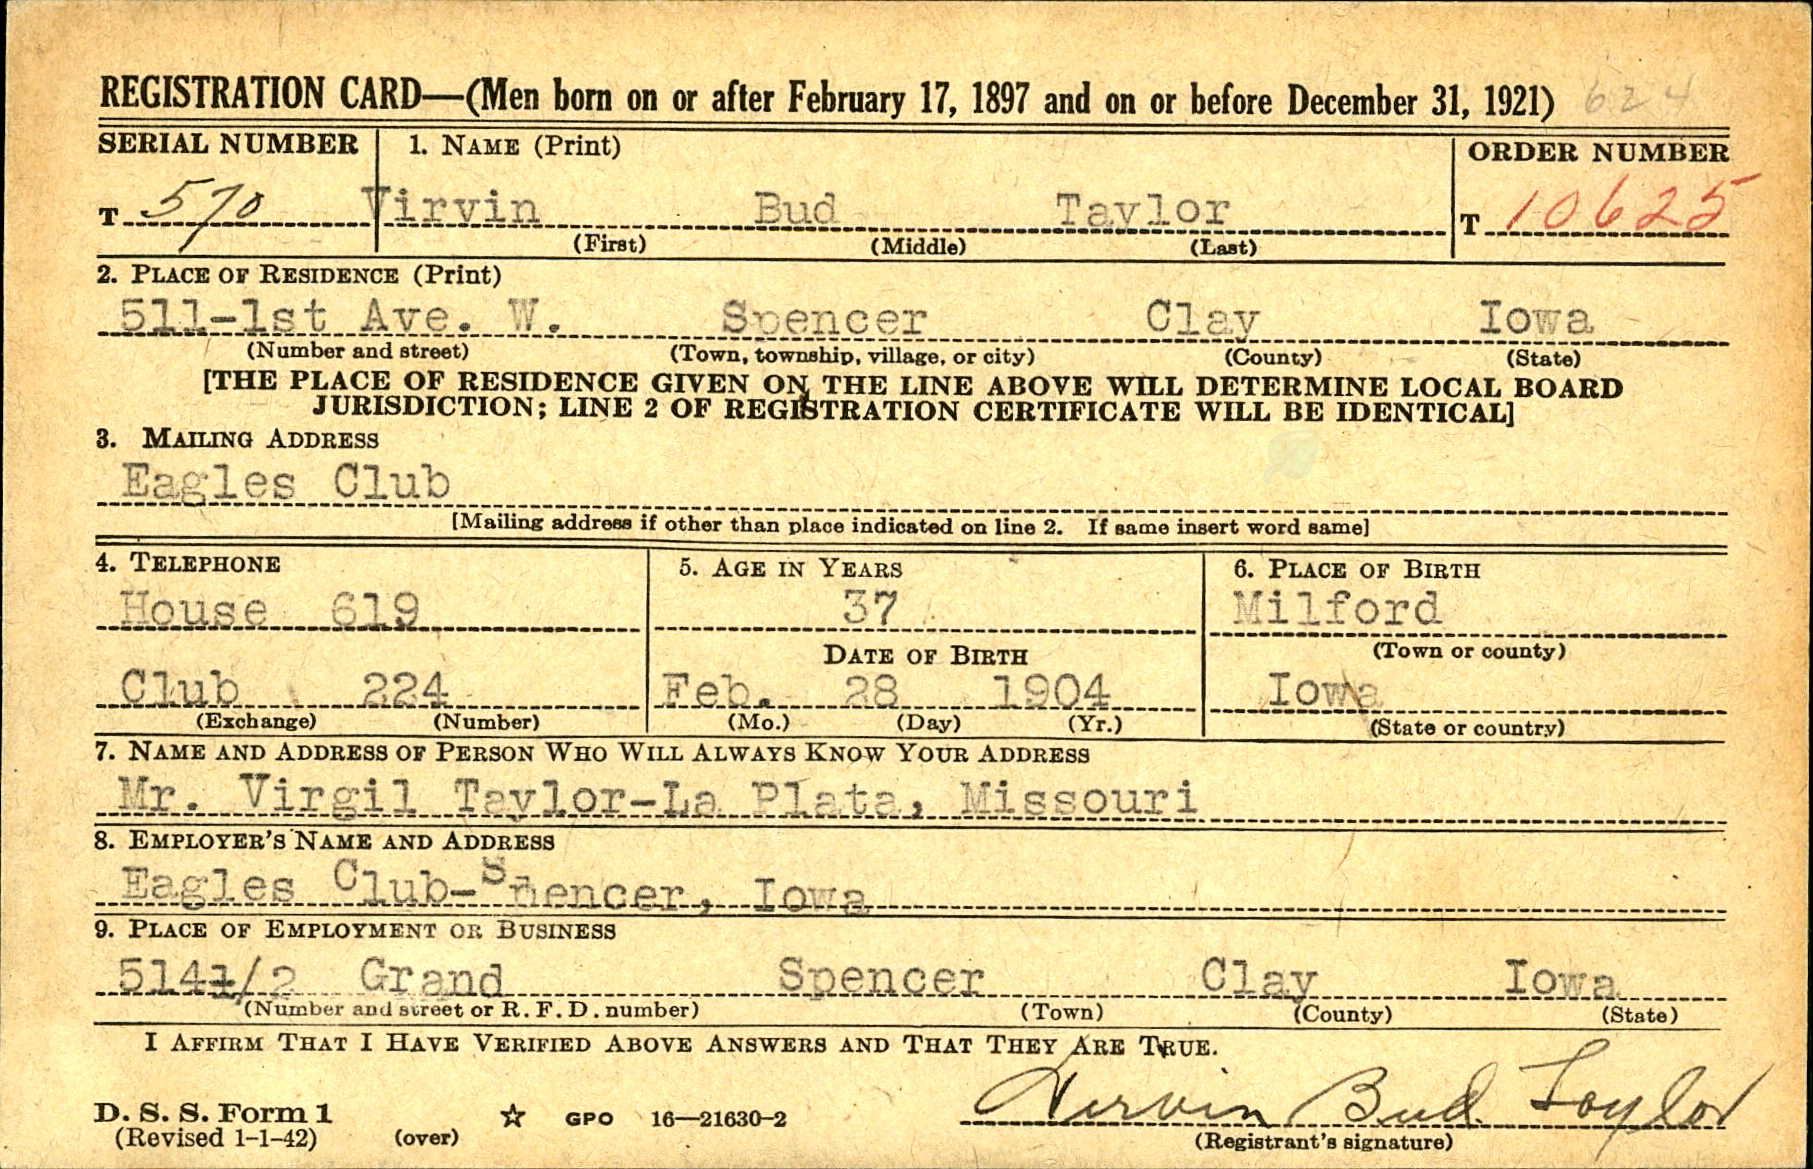 REGISTRATION CARD—(Men born on or after February 17, 1897 and on or before December 31, 1921) 624
SERIAL NUMBER 1. NAME (Print) ORDER NUMBER
T 570 Virvin Bud Taylor T 10625
(First) (Middle) (Last)
2. PLACE OF RESIDENCE (Print)
511-1st Ave. W. Spencer Clay Iowa
(Number and street) (Town, township, village, or city) (County) (State)
[THE PLACE OF RESIDENCE GIVEN ON THE LINE ABOVE WILL DETERMINE LOCAL BOARD
JURISDICTION; LINE 2 OF REGISTRATION CERTIFICATE WILL BE IDENTICAL]
3. MAILING ADDRESS
Eagles Club
[Mailing address if other than place indicated on line 2. If same insert word same]
4. TELEPHONE 5. AGE IN YEARS 6. PLACE OF BIRTH
House 619 37 Milford
DATE OF BIRTH (Town or county)
Club 224 Feb. 28 1904 Iowa
(Exchange) (Number) (Mo.) (Day) (Yr.) (State or country)
7. NAME AND ADDRESS OF PERSON WHO WILL ALWAYS KNOW YOUR ADDRESS
Mr. Virgil Taylor-La Plata, Missouri
8. EMPLOYER'S NAME AND ADDRESS
Eagles Club-Spencer, Iowa
9. PLACE OF EMPLOYMENT OR BUSINESS
514 1/2 Grand Spencer Clay Iowa
(Number and street or R. F. D. number) (Town) (County) (State)
I AFFIRM THAT I HAVE VERIFIED ABOVE ANSWERS AND THAT THEY ARE TRUE.
D. S. S. Form 1 ☆ GPO 16—21630-2 Virvin Bud Taylor
(Revised 1-1-42) (over) (Registrant's signature)